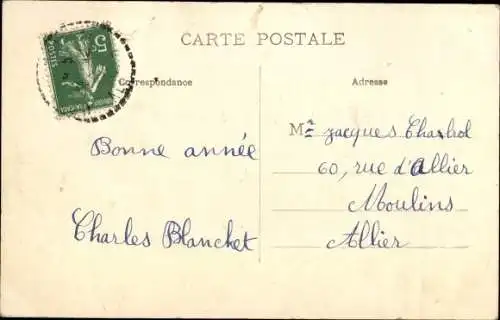 CARTE POSTALE
5
POSTES
Correspondance
Adresse
Bonne année
Charles Blanchet
Mr Jacques Charbol
60, rue d'Allier
Moulins
Allier